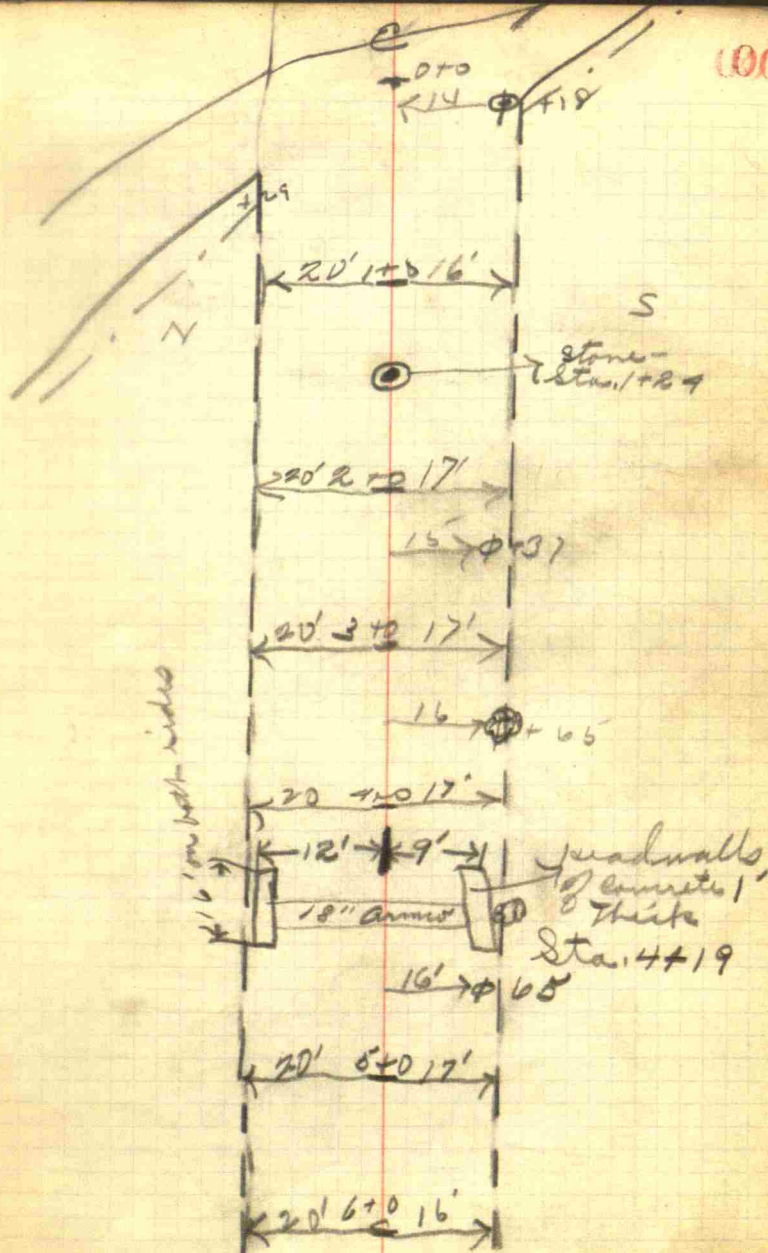 0+0
14 +18
+29
20' 1+0 16'
N
S
Stone-
Sta. 1+24
20' 2+0 17'
15' +37
20' 3+0 17'
16 +65
20 4+0 17'
16' on both sides
12' 9'
headwalls
of concrete 1'
Thick
18" Armco
Sta. 4+19
16' 65
20' 5+0 17'
20' 6+0 16'